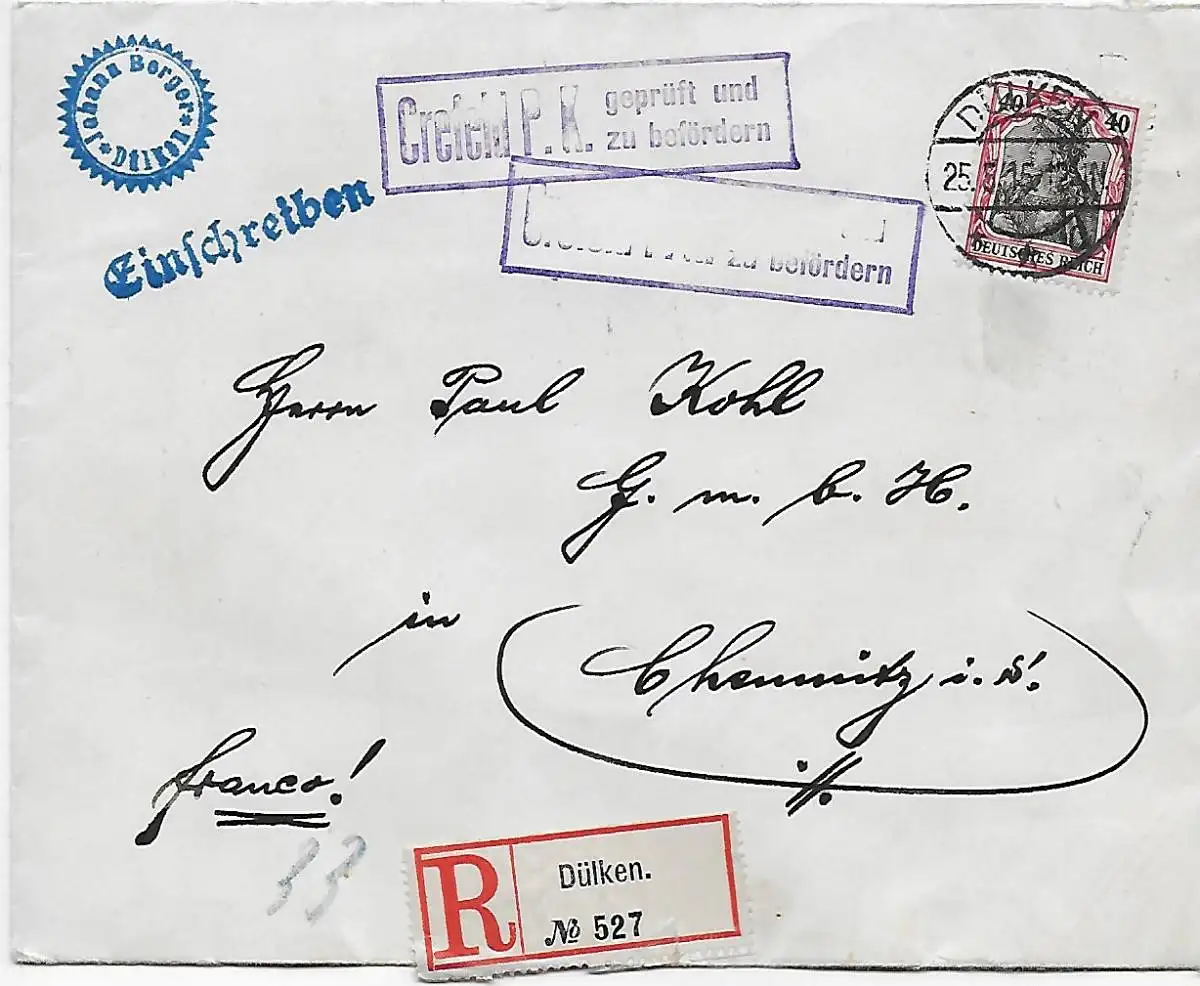 Johann Berger
* Dülken *
Einschreiben
Crefeld P. K. geprüft und
zu befördern
zu befördern
40 40
DEUTSCHES REICH
DÜLKEN
25.
Herrn Paul Kohl
G. m. b. H.
in Chemnitz i. S.
franco!
33
R Dülken.
№ 527